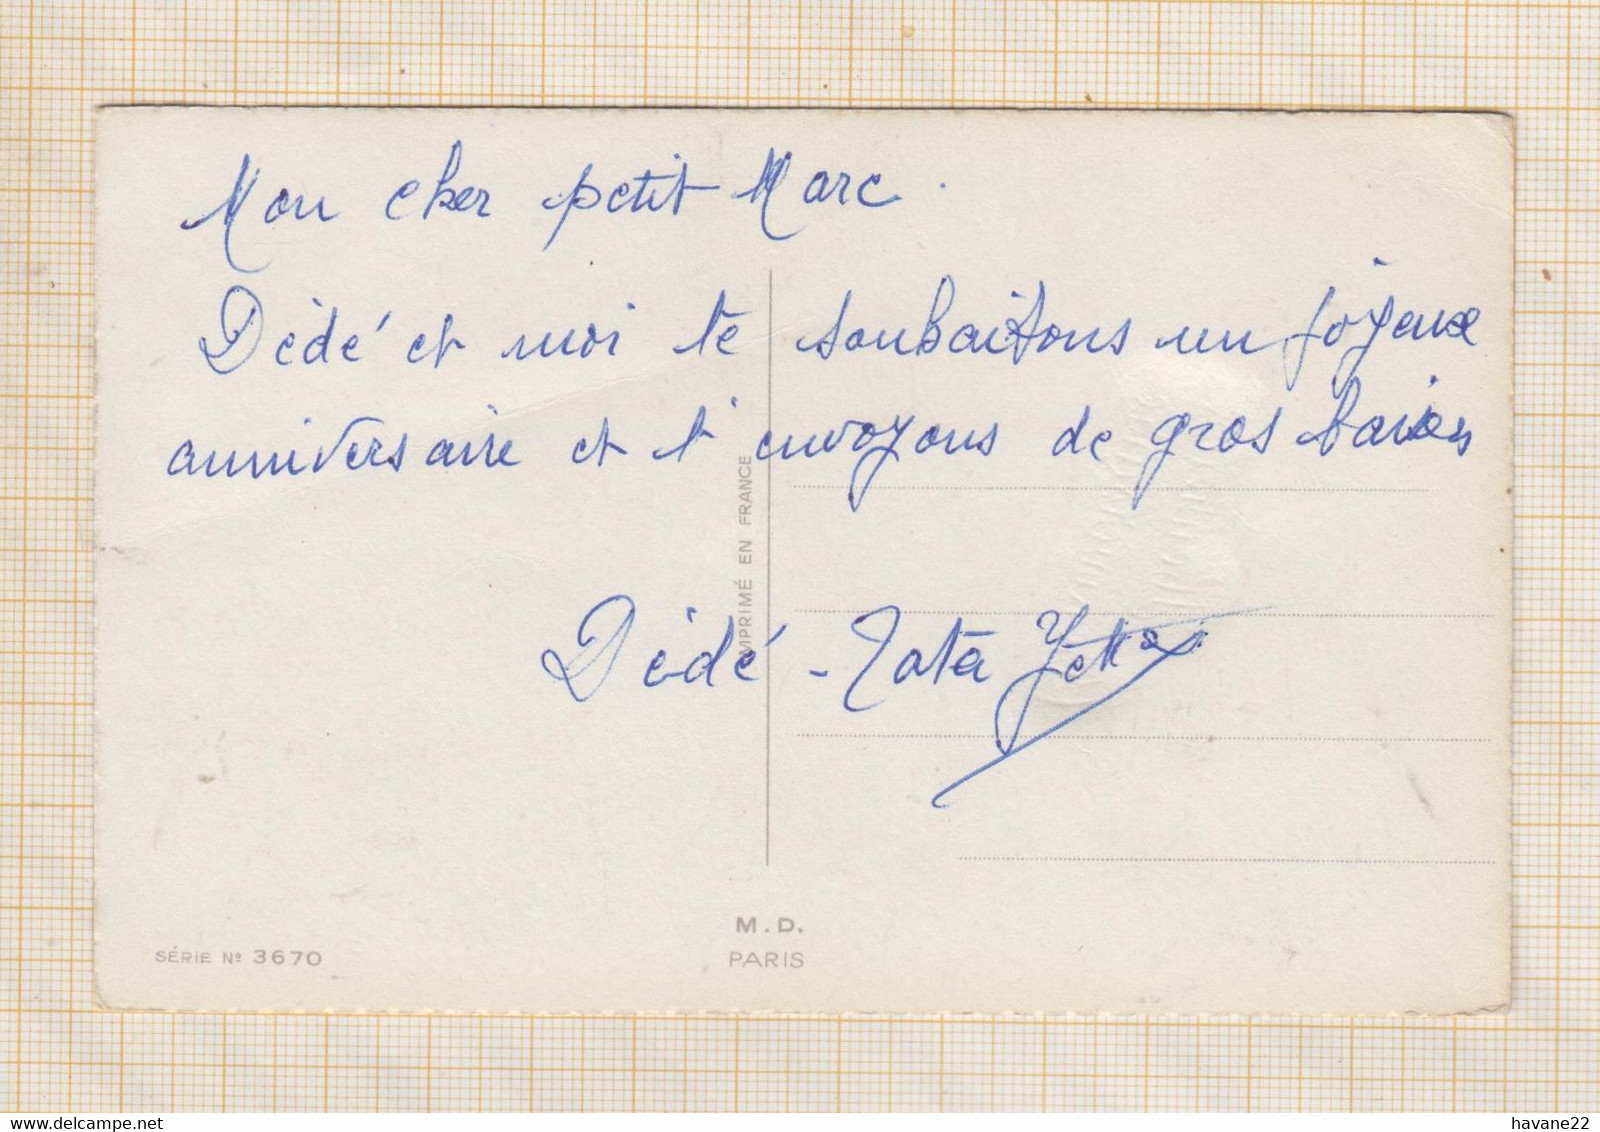 Mon cher petit Marc.
Dédé et moi te souhaitons un joyeux
anniversaire et t'envoyons de gros baisers
Dédé - Tata Yette
IMPRIMÉ EN FRANCE
M.D.
PARIS
SÉRIE Nº 3670
havane22